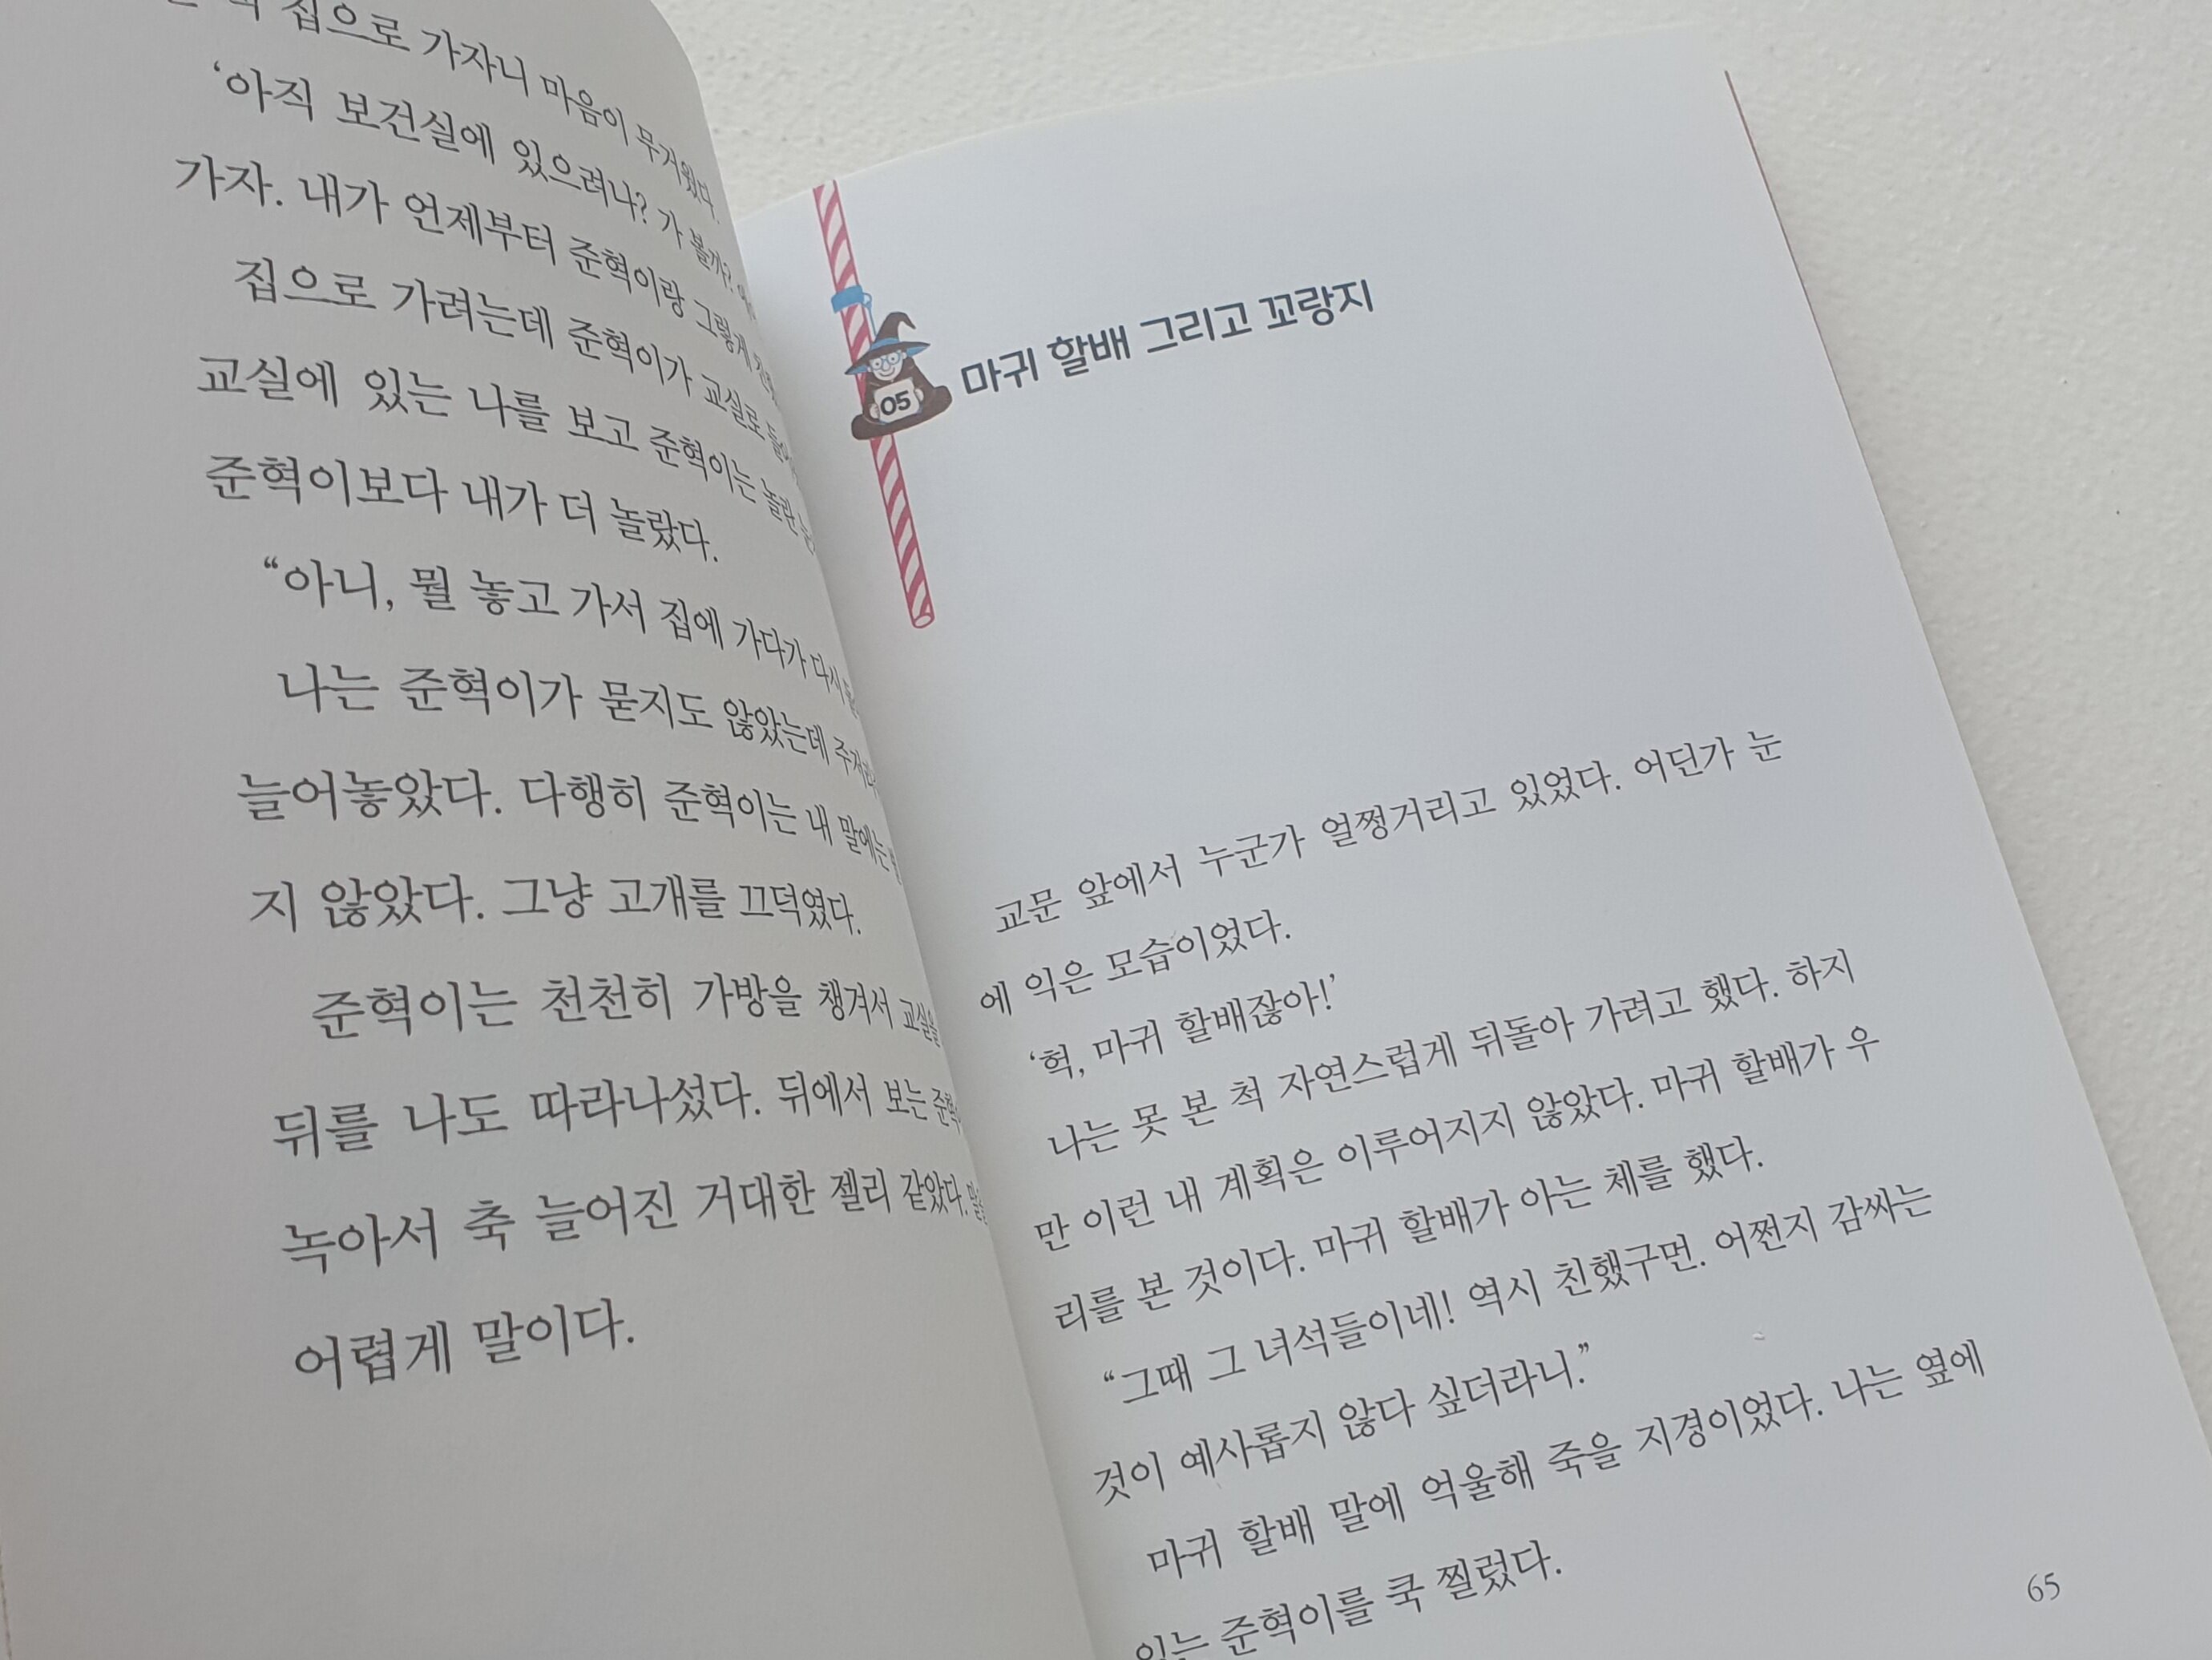 집으로 가자니 마음이 무거웠다.
‘아직 보건실에 있으려나? 가 볼까?
가자. 내가 언제부터 준혁이랑 그렇게
집으로 가려는데 준혁이가 교실로
교실에 있는 나를 보고 준혁이는 놀란
준혁이보다 내가 더 놀랐다.
“아니, 뭘 놓고 가서 집에 가다가 다시
나는 준혁이가 묻지도 않았는데
늘어놓았다. 다행히 준혁이는 내 말에는
지 않았다. 그냥 고개를 끄덕였다.
준혁이는 천천히 가방을 챙겨서 교실을
뒤를 나도 따라나섰다. 뒤에서 보는
녹아서 축 늘어진 거대한 젤리 같았다.
어렵게 말이다.
05
마귀 할배 그리고 꼬랑지
교문 앞에서 누군가 얼쩡거리고 있었다. 어딘가 눈
에 익은 모습이었다.
‘헉, 마귀 할배잖아!’
나는 못 본 척 자연스럽게 뒤돌아 가려고 했다. 하지
만 이런 내 계획은 이루어지지 않았다. 마귀 할배가 우
리를 본 것이다. 마귀 할배가 아는 체를 했다.
“그때 그 녀석들이네! 역시 친했구먼. 어쩐지 감싸는
것이 예사롭지 않다 싶더라니.”
마귀 할배 말에 억울해 죽을 지경이었다. 나는 옆에
있는 준혁이를 쿡 찔렀다.
65